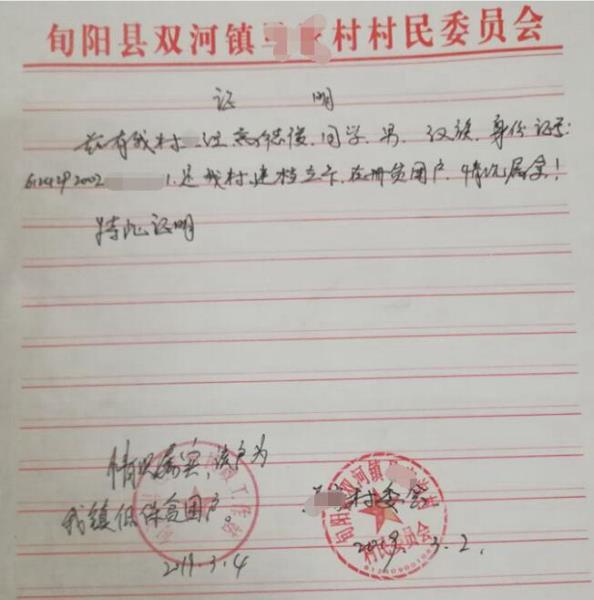 旬阳县双河镇 村村民委员会
证 明
兹有我村 组 同学,男,汉族,身份证号:
6124292002 1,是我村建档立卡,在册贫困户,情况属实!
特此证明
情况属实,该户为
我镇低保贫困户。
2019.3.4
村委会
2019.3.2.
旬阳县双河镇
村民委员会